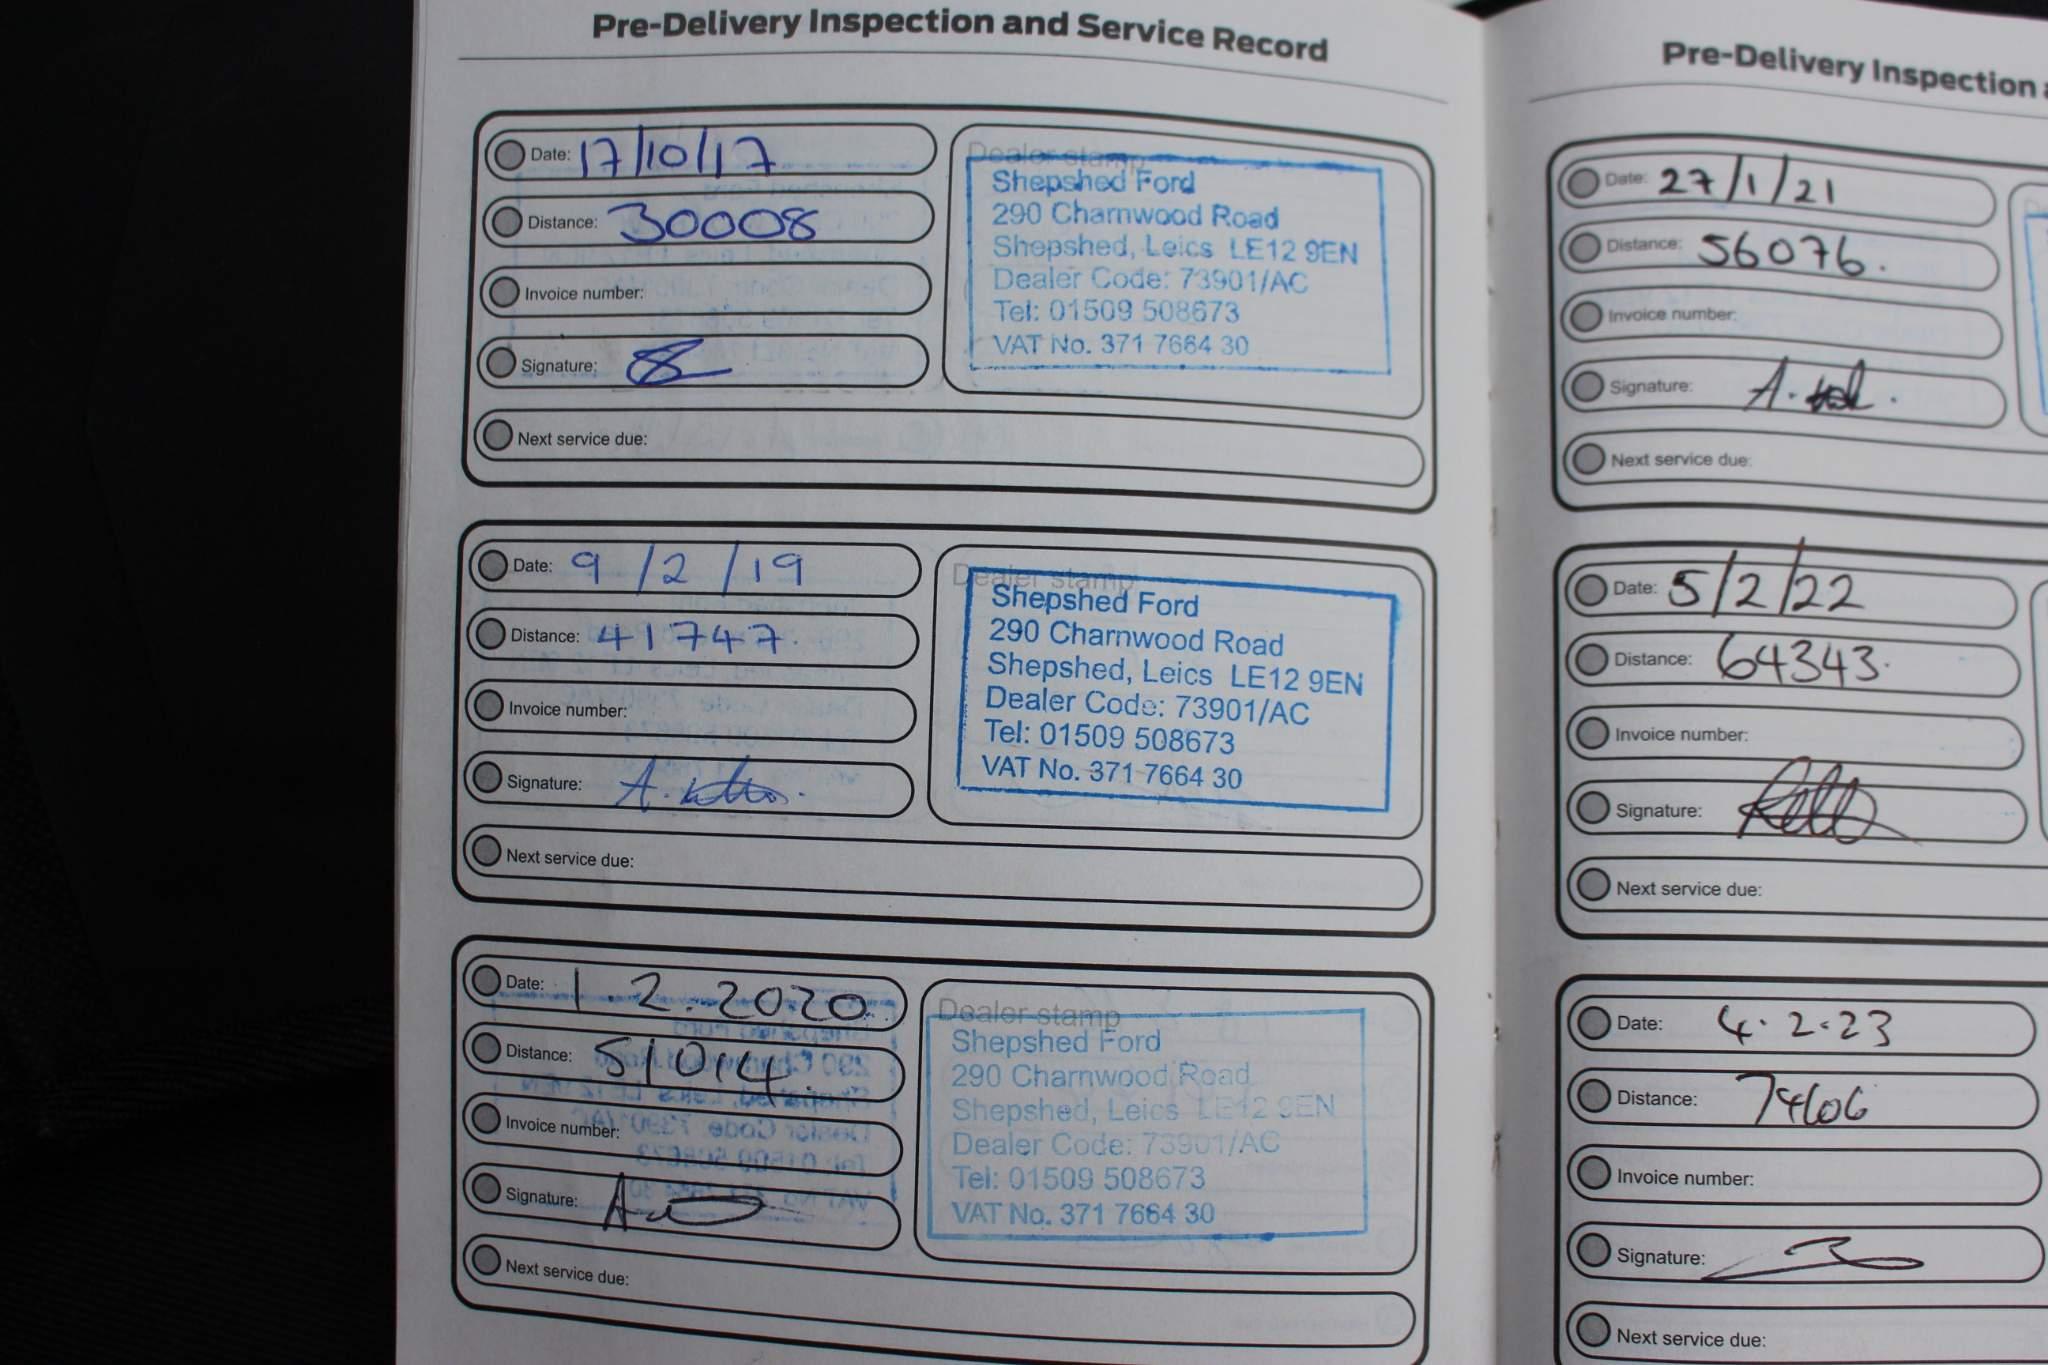 Pre-Delivery Inspection and Service Record
Date: 17/10/17
Distance: 30008
Invoice number:
Signature:
Next service due:
Dealer stamp
Shepshed Ford
290 Charnwood Road
Shepshed, Leics LE12 9EN
Dealer Code: 73901/AC
Tel: 01509 508673
VAT No. 371 7664 30
Date: 9/2/19
Distance: 41747.
Invoice number:
Signature:
Next service due:
Dealer stamp
Shepshed Ford
290 Charnwood Road
Shepshed, Leics LE12 9EN
Dealer Code: 73901/AC
Tel: 01509 508673
VAT No. 371 7664 30
Date: 1.2.2020
Distance: 51014.
Invoice number:
Signature:
Next service due:
Dealer stamp
Shepshed Ford
290 Charnwood Road
Shepshed, Leics LE12 9EN
Dealer Code: 73901/AC
Tel: 01509 508673
VAT No. 371 7664 30
Pre-Delivery Inspection
Date: 27/1/21
Distance: 56076.
Invoice number:
Signature:
Next service due:
Date: 5/2/22
Distance: 64343.
Invoice number:
Signature:
Next service due:
Date: 4.2.23
Distance: 74606
Invoice number:
Signature:
Next service due: